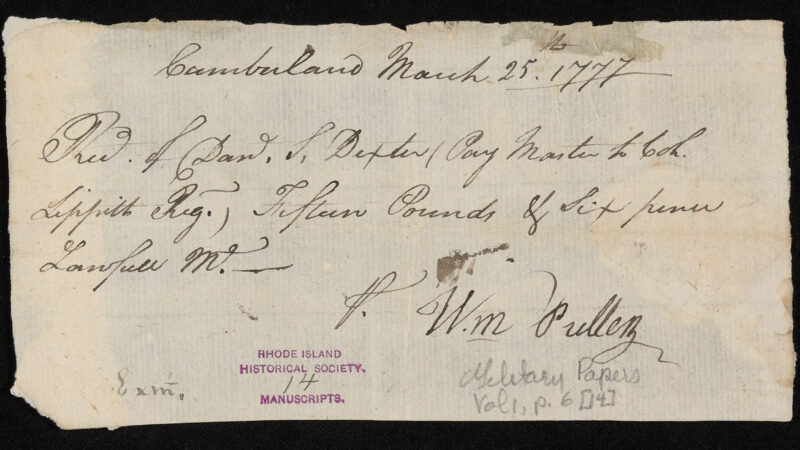 Cumberland March 25th. 1777
Recd. of (Davd. S. Dexter (Pay Master to Col.
Lippitts Reg.) Fifteen Pounds & Six pence
Lawfull My.
Wm Pullen
Exm.
RHODE ISLAND
HISTORICAL SOCIETY.
14
MANUSCRIPTS.
Military Papers
Vol 1, p. 6 [14]